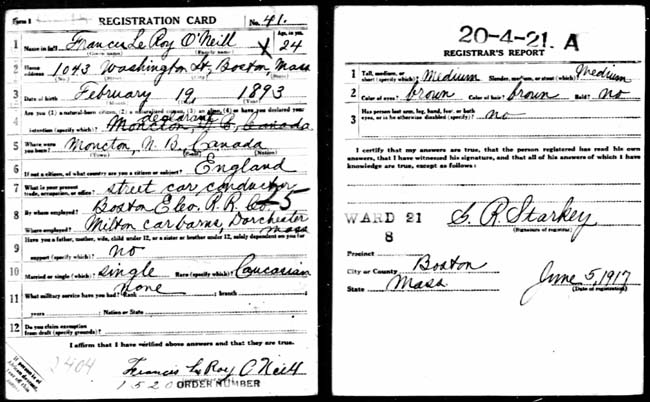 Form 1 REGISTRATION CARD No. 41.
1 Name in full Francis Le Roy O'Neill Age, in yrs. 24
(Given name) (Family name)
2 Home address 1043 Washington St, Boston, Mass
(No.)
3 Date of birth February 19 1893
4 Are you (1) a natural-born citizen, (2) a naturalized citizen, (3) an alien, (4) or have you declared your
declarant
intention (specify which)? Moncton, N. B., Canada
5 Where were you born? Moncton, N. B. Canada
(Town) (State) (Nation)
6 If not a citizen, of what country are you a citizen or subject? England
7 What is your present trade, occupation, or office? street car conductor
8 By whom employed? Boston Elev. R. R. Co. 5
Where employed? Milton car barns, Dorchester
Mass
9 Have you a father, mother, wife, child under 12, or a sister or brother under 12, solely dependent on you for
support (specify which)? no
10 Married or single (which)? single Race (specify which)? Caucasian
11 What military service have you had? Rank none ; branch ;
years ; Nation or State
12 Do you claim exemption from draft (specify grounds)?
I affirm that I have verified above answers and that they are true.
2404
Francis Le Roy O'Neill
1520 ORDER NUMBER
If person is of African descent, tear off this corner
20-4-21. A
REGISTRAR'S REPORT
1 Tall, medium, or short (specify which)? Medium Slender, medium, or stout (which)? Medium
2 Color of eyes? brown Color of hair? brown Bald? No
3 Has person lost arm, leg, hand, foot, or both eyes, or is he otherwise disabled (specify)? No
I certify that my answers are true, that the person registered has read his own
answers, that I have witnessed his signature, and that all of his answers of which I have
knowledge are true, except as follows:
WARD 21
8
S. R. Starkey
(Signature of registrar)
Precinct
City or County Boston
State Mass
June 5, 1917
(Date of registration)